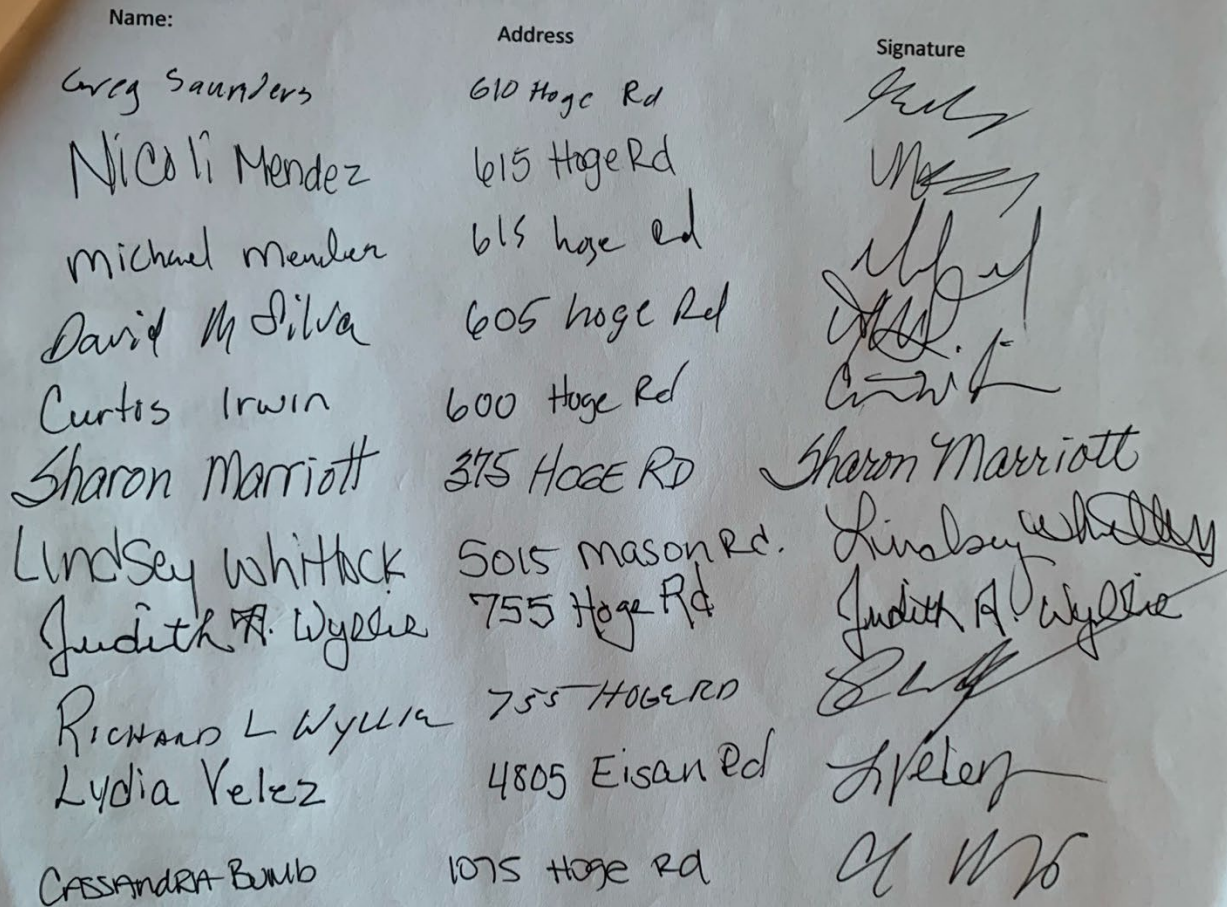 Name: Address Signature
Greg Saunders 610 Hoge Rd
Nicoli Mendez 615 Hoge Rd
Michael 615 hoge Rd
David M Silva 605 hoge Rd
Curtis Irwin 600 Hoge Rd
Sharon Marriott 375 HOGE RD Sharon Marriott
Lindsey Whitlock 5015 Mason Rd. Lindsey
Judith A. Wyllie 755 Hoge Rd Judith A. Wyllie
RICHARD L WYLLIE 755 HOGE RD
Lydia Velez 4805 Eisan Rd LVelez
CASSANDRA BUMB 1075 Hoge Rd